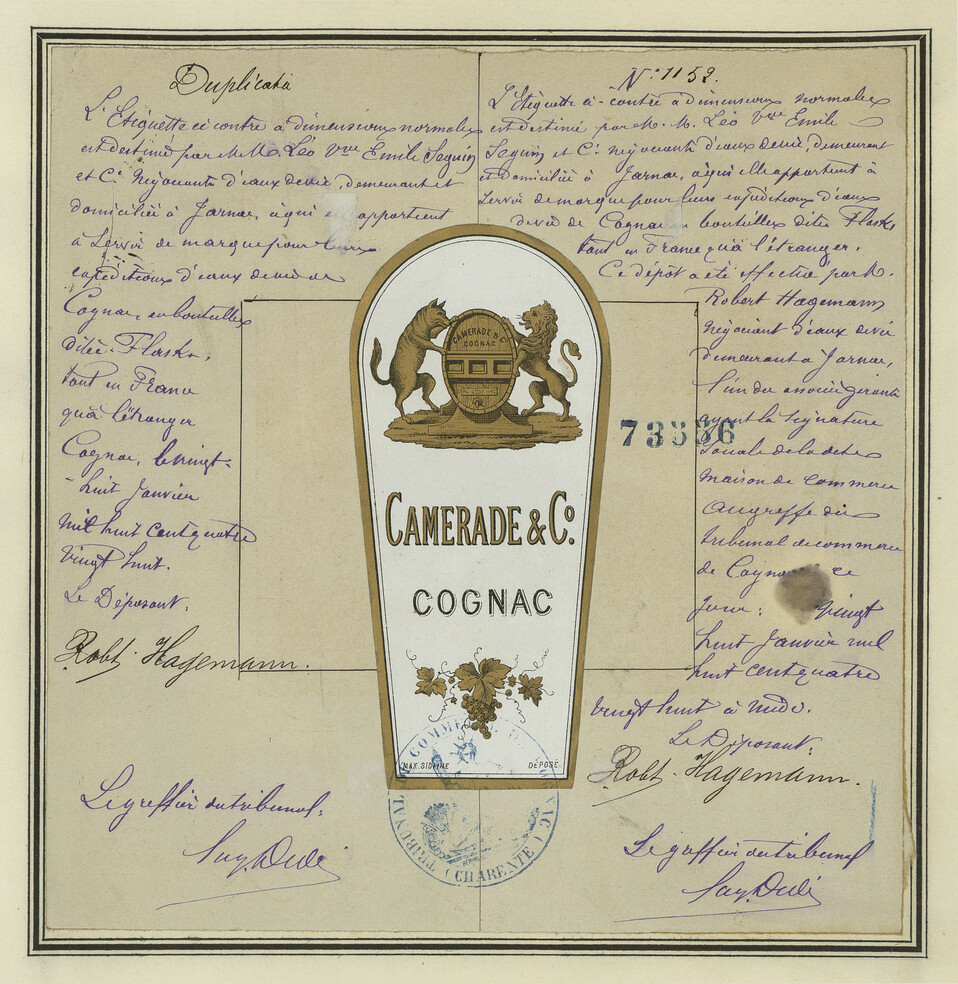 Duplicata
L'Etiquette ci contre à dimensions normales
est destiné par M M. Léo Vve Emile Seguin
et Cie Négociants d'eaux devie, demeurant et
domiciliés à Jarnac, à qui elle appartient
à Servir de marque pour leurs
expéditions d'eaux de vie de
Cognac, en bouteilles
dites Flasks,
tant en France
qu'à l'étranger
Cognac, le vingt-
huit Janvier
mil huit cent quatre
vingt huit.
Le Déposant,
Robt. Hagemann.
Le greffier du tribunal,
N° 1152.
L'Etiquette ci-contre à dimensions normales
est destiné par M. M. Léo Vve Emile
Seguin et Cie négociants d'eaux devie, demeurant
et domiciliés à Jarnac, à qui elle appartient à
Servir de marque pour leurs expéditions d'eaux
devie de Cognac en bouteilles dites Flasks,
tant en France qu'à l'étranger.
Ce dépôt a été effectué par M.
Robert Hagemann
négociant d'eaux devie
demeurant à Jarnac,
l'un des associés gérants
ayant la Signature
Sociale de la dite
maison de commerce
au greffe du
tribunal de commerce
de Cognac ce
jour: vingt
huit Janvier mil
huit cent quatre
vingt huit à midi.
Le Déposant:
Robt. Hagemann.
Le greffier du tribunal
CAMERADE & Co
COGNAC
73536
CAMERADE & Co.
COGNAC
DÉPOSÉ
TRIBUNAL DE COMMERCE DE COGNAC (CHARENTE)